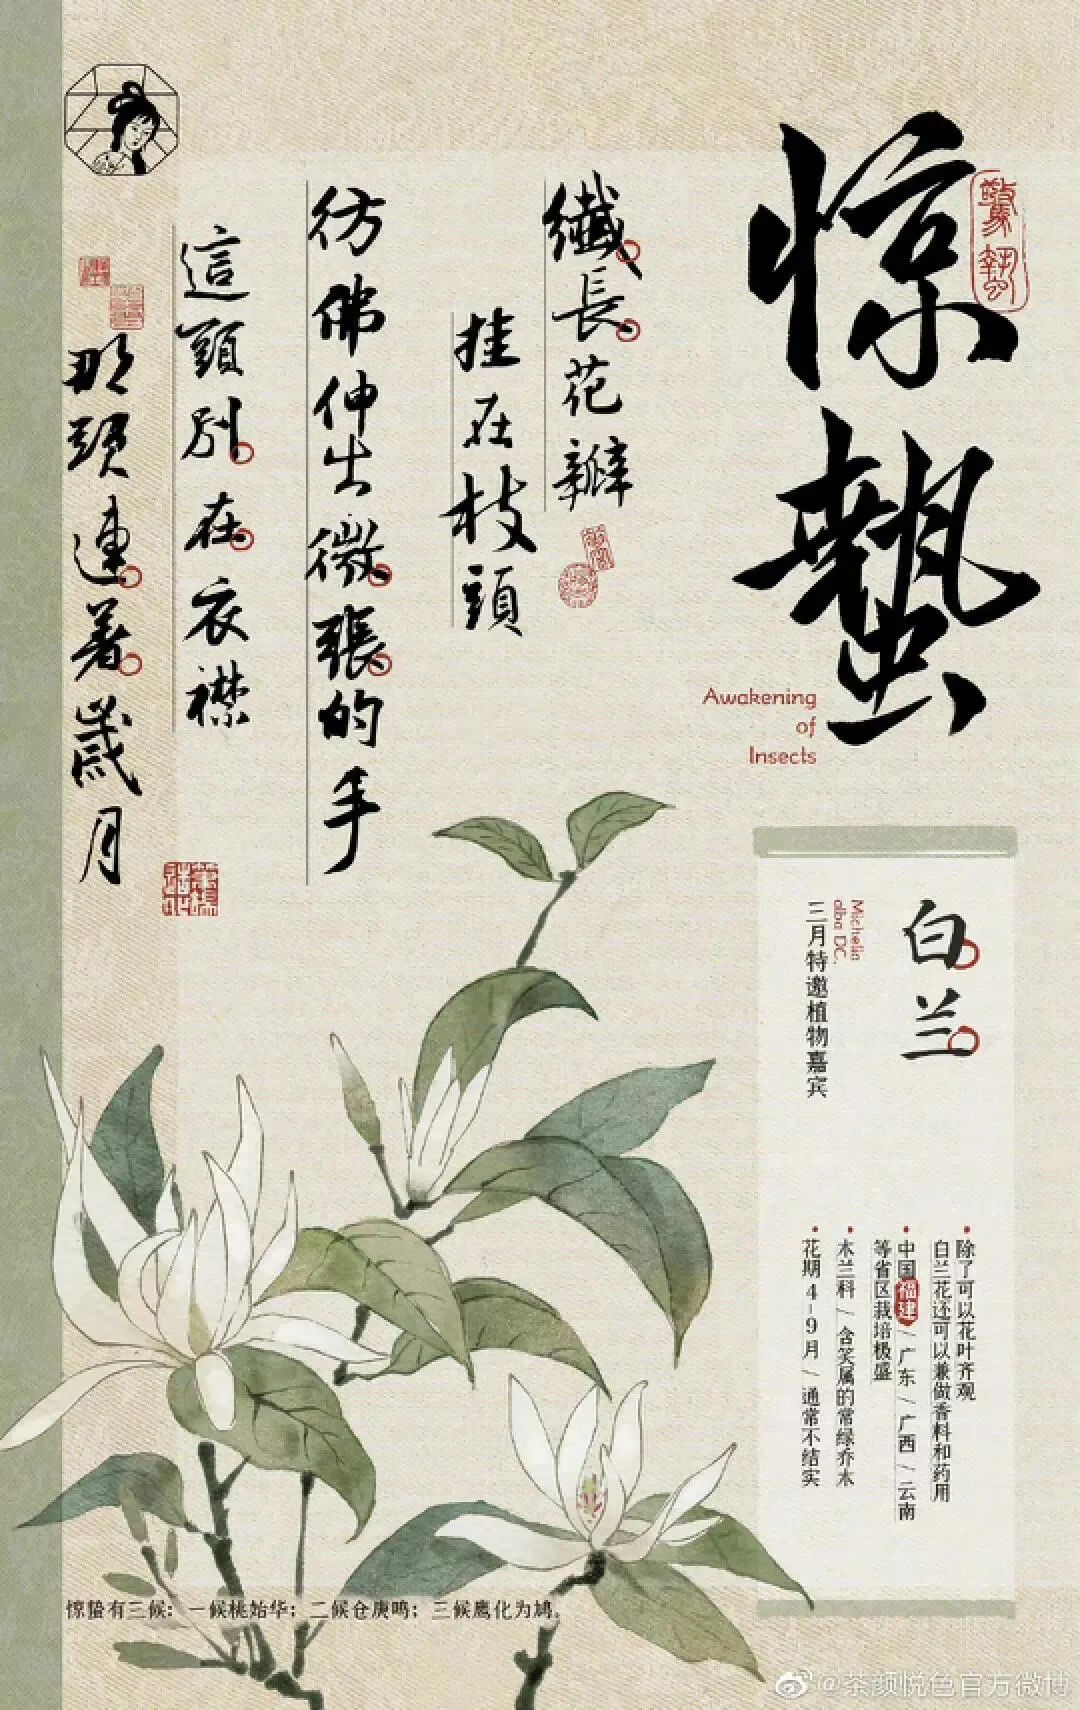 惊蛰
驚蟄
Awakening
of
Insects
纖長花瓣
挂在枝頭
彷彿伸出微張的手
這頭别在衣襟
那頭連著歲月
白兰
Michelia
alba DC.
三月特邀植物嘉宾
除了可以花叶齐观
白兰花还可以兼做香料和药用
中国福建/广东/广西/云南
等省区栽培极盛
木兰科/含笑属的常绿乔木
花期4-9月/通常不结实
惊蛰有三候：一候桃始华；二候仓庚鸣；三候鹰化为鸠。
@茶颜悦色官方微博